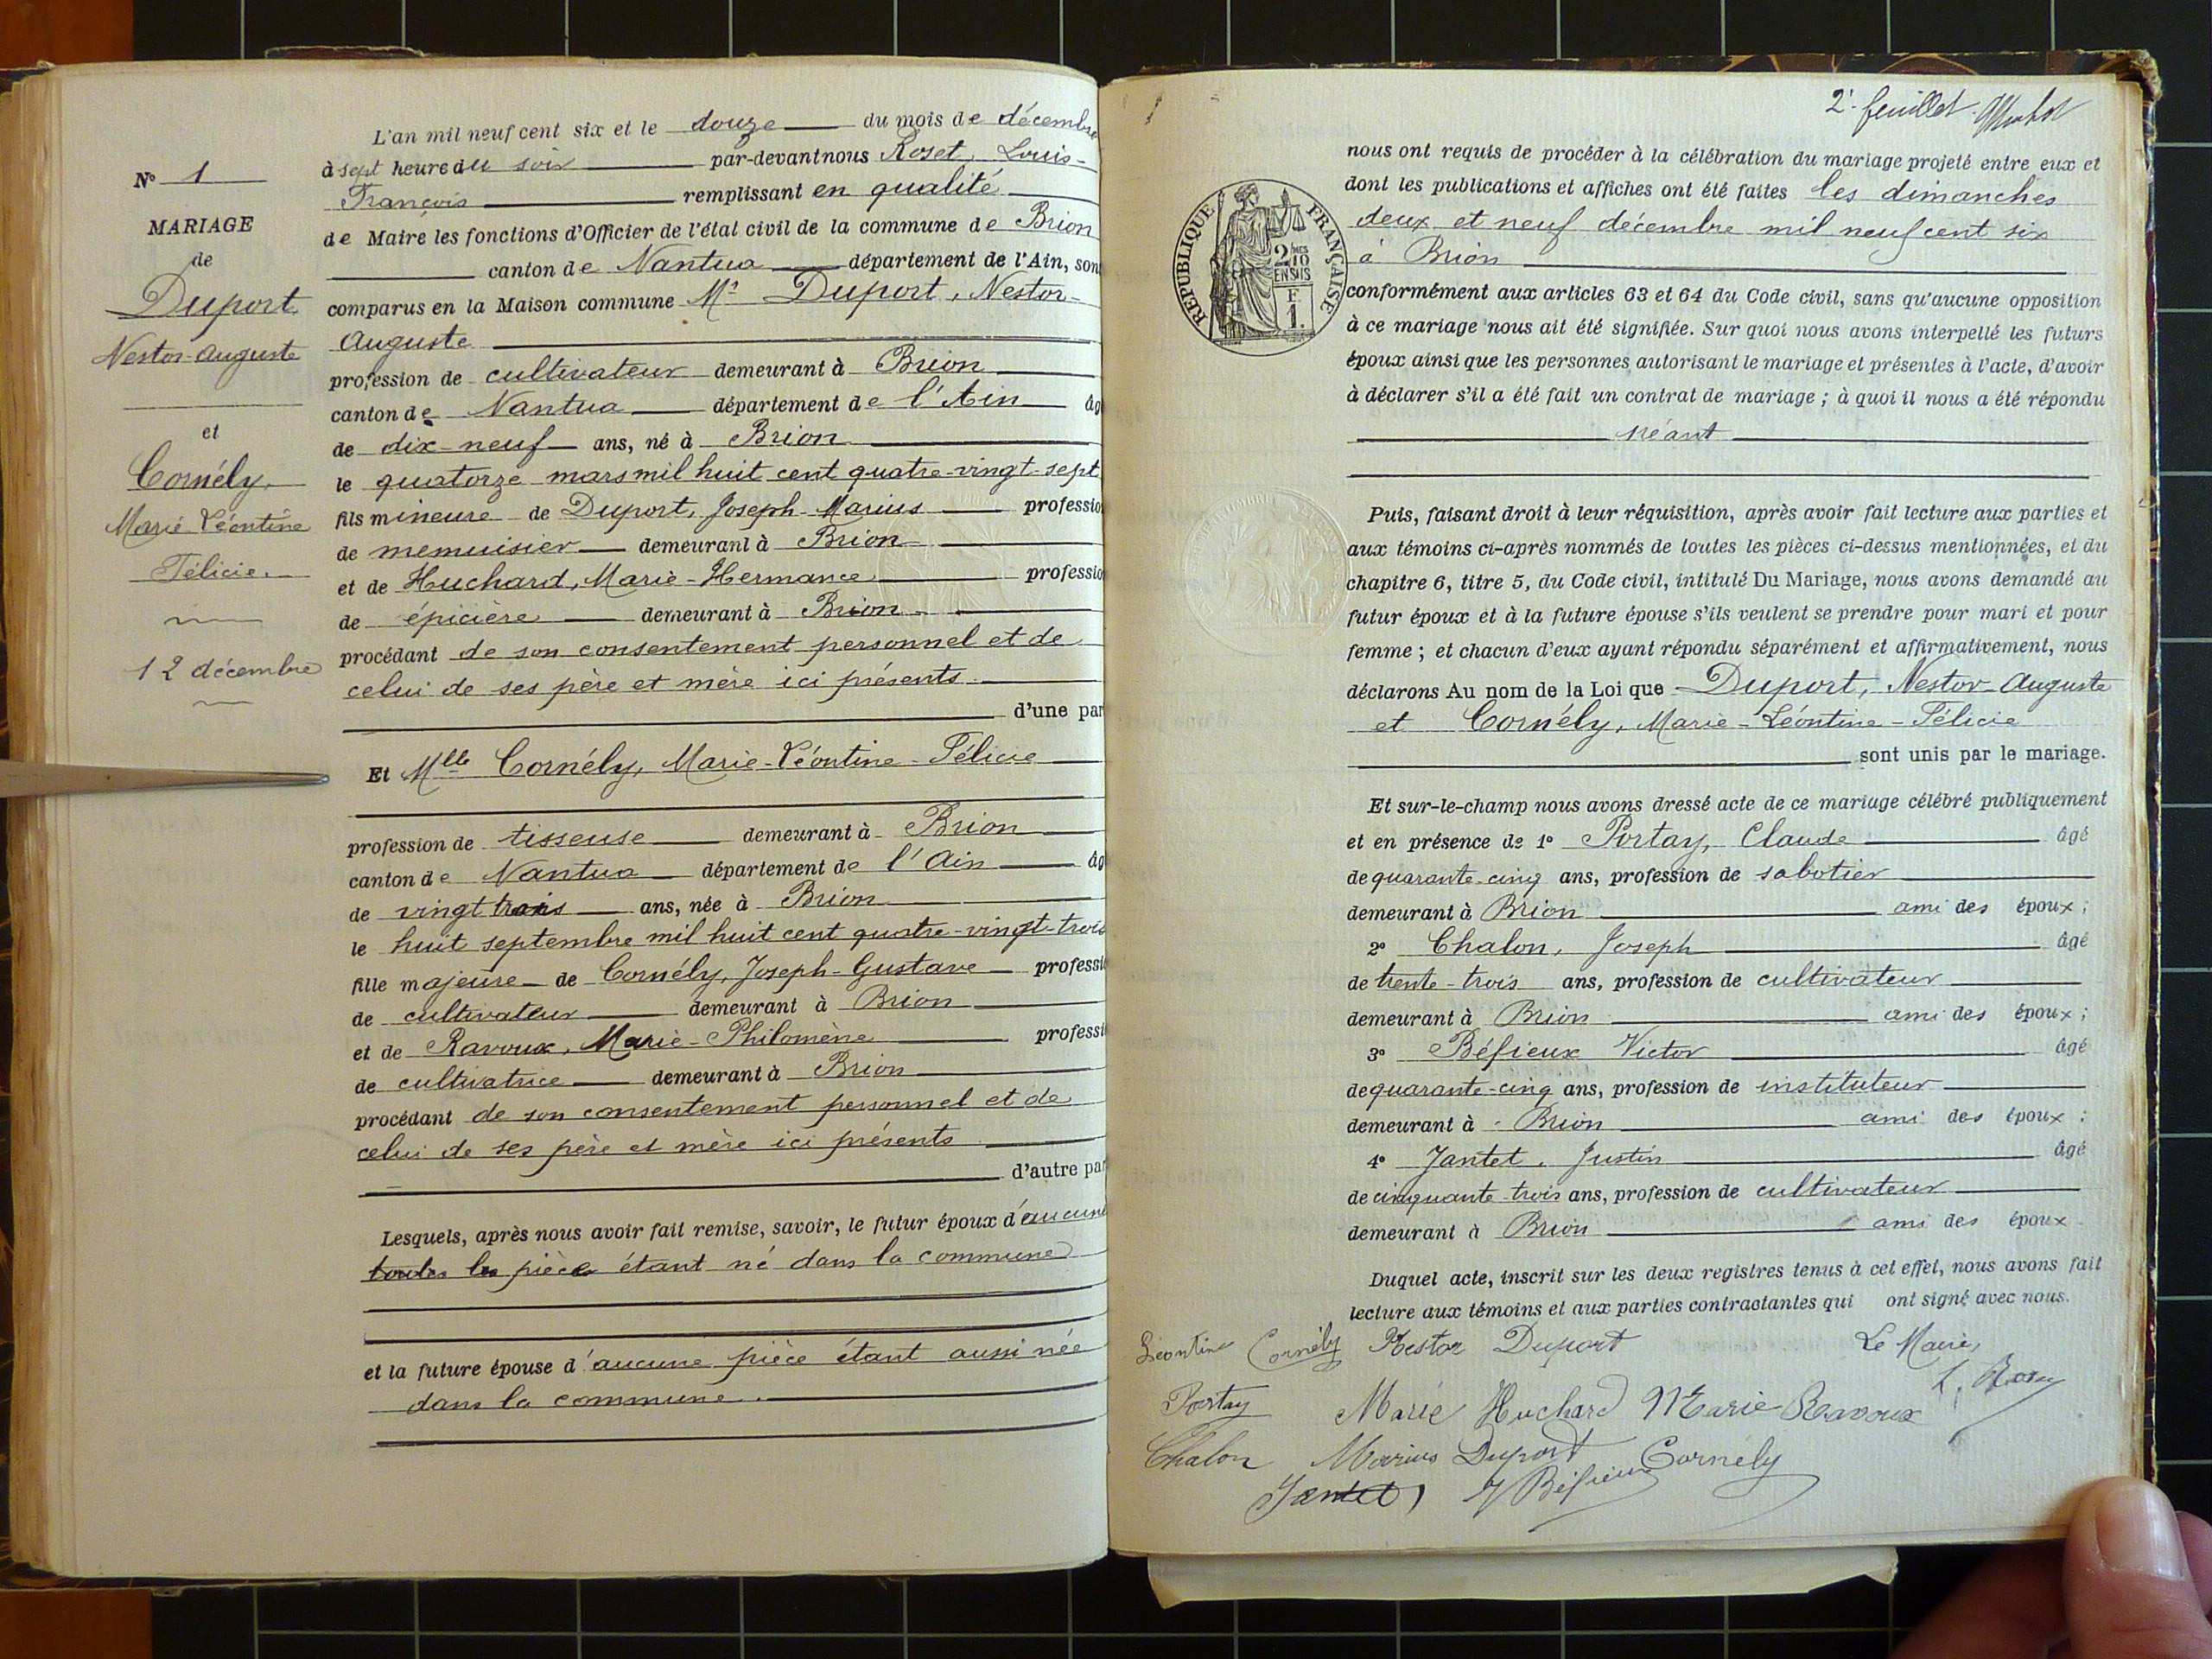 N° 1
MARIAGE
de
Duport
Nestor-Auguste
et
Cornély,
Marie-Léontine
Félicie.
12 décembre
L'an mil neuf cent six et le douze du mois de décembre
à sept heure du soir par-devant nous Roset, Louis-
François remplissant en qualité
de Maire les fonctions d'Officier de l'état civil de la commune de Brion
canton de Nantua département de l'Ain, son
comparus en la Maison commune Mr Duport, Nestor-
Auguste
profession de cultivateur demeurant à Brion
canton de Nantua département de l'Ain âg
de dix-neuf ans, né à Brion
le quatorze mars mil huit cent quatre-vingt-sept
fils mineure de Duport, Joseph-Marius professio
de menuisier demeurant à Brion
et de Huchard, Marie-Hermance professio
de épicière demeurant à Brion
procédant de son consentement personnel et de
celui de ses père et mère ici présents.
d'une par
Et Mlle Cornély, Marie-Léontine-Félicie
profession de tisseuse demeurant à Brion
canton de Nantua département de l'Ain âg
de vingt trois ans, née à Brion
le huit septembre mil huit cent quatre-vingt-trois
fille majeure de Cornély, Joseph-Gustave professi
de cultivateur demeurant à Brion
et de Ravoux, Marie-Philomène professi
de cultivatrice demeurant à Brion
procédant de son consentement personnel et de
celui de ses père et mère ici présents
d'autre par
Lesquels, après nous avoir fait remise, savoir, le futur époux d'aucune
toutes les pièce étant né dans la commune
et la future épouse d'aucune pièce étant aussi née
dans la commune.
2e feuillet
nous ont requis de procéder à la célébration du mariage projeté entre eux et
dont les publications et affiches ont été faites les dimanches
deux et neuf décembre mil neuf cent six
à Brion
conformément aux articles 63 et 64 du Code civil, sans qu'aucune opposition
à ce mariage nous ait été signifiée. Sur quoi nous avons interpellé les futurs
époux ainsi que les personnes autorisant le mariage et présentes à l'acte, d'avoir
à déclarer s'il a été fait un contrat de mariage ; à quoi il nous a été répondu
néant
RÉPUBLIQUE FRANÇAISE
2 10MES
EN SUS
F
1.
Puis, faisant droit à leur réquisition, après avoir fait lecture aux parties et
aux témoins ci-après nommés de toutes les pièces ci-dessus mentionnées, et du
chapitre 6, titre 5, du Code civil, intitulé Du Mariage, nous avons demandé au
futur époux et à la future épouse s'ils veulent se prendre pour mari et pour
femme ; et chacun d'eux ayant répondu séparément et affirmativement, nous
déclarons Au nom de la Loi que Duport, Nestor-Auguste
et Cornély, Marie-Léontine-Félicie
sont unis par le mariage.
Et sur-le-champ nous avons dressé acte de ce mariage célébré publiquement
et en présence de 1° Portay, Claude âgé
de quarante-cinq ans, profession de sabotier
demeurant à Brion ami des époux ;
2° Chalon, Joseph âgé
de trente-trois ans, profession de cultivateur
demeurant à Brion ami des époux ;
3° Béfieux Victor âgé
de quarante-cinq ans, profession de instituteur
demeurant à Brion ami des époux ;
4° Jantet, Justin âgé
de cinquante-trois ans, profession de cultivateur
demeurant à Brion ami des époux
Duquel acte, inscrit sur les deux registres tenus à cet effet, nous avons fait
lecture aux témoins et aux parties contractantes qui ont signé avec nous.
Léontine Cornély Nestor Duport Le Maire,
Portay Marie Huchard Marie Ravoux
Chalon Marius Duport Cornély
Jantet Béfieux